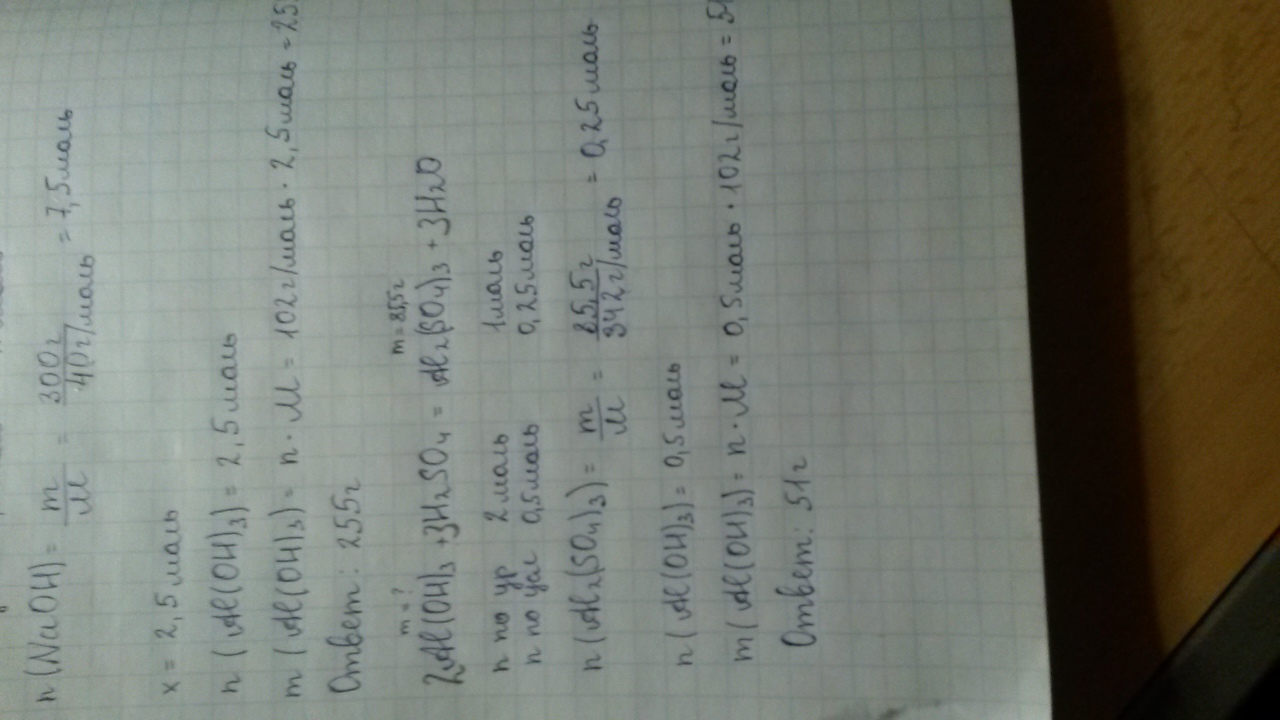 n(NaOH) = m/M = 300г/40г/моль = 7,5моль
x = 2,5моль
n(Al(OH)3) = 2,5моль
m(Al(OH)3) = n·M = 102г/моль · 2,5моль = 25
Ответ: 255г
m=? m=85,5г
2Al(OH)3 + 3H2SO4 = Al2(SO4)3 + 3H2O
n по ур 2моль 1моль
n по усл 0,5моль 0,25моль
n(Al2(SO4)3) = m/M = 85,5г/342г/моль = 0,25моль
n(Al(OH)3) = 0,5моль
m(Al(OH)3) = n·M = 0,5моль · 102г/моль = 51
Ответ: 51г